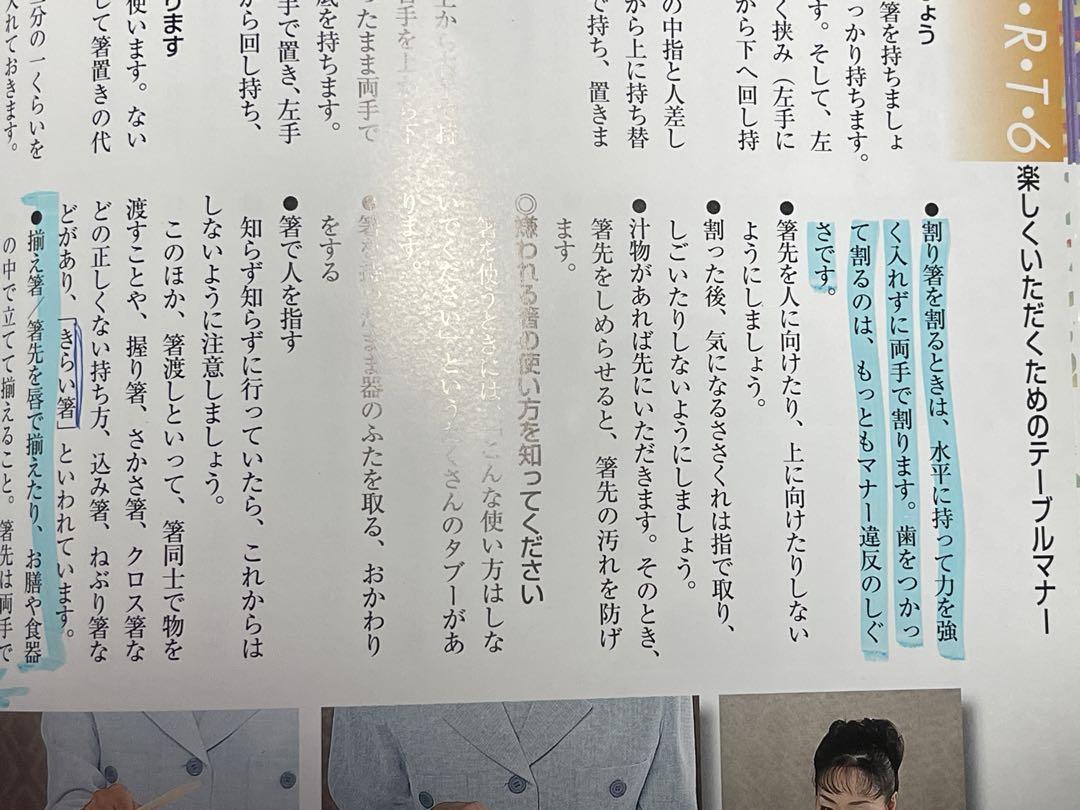 R・T・6
楽しくいただくためのテーブルマナー
しょう
箸を持ちましょ
っかり持ちます。
す。そして、左
く挟み（左手に
から下へ回し持
の中指と人差し
から上に持ち替
で持ち、置きま
ったまま両手で
底を持ちます。
手で置き、左手
から回し持ち、
ります
使います。ない
して箸置きの代
分の一くらいを
入れておきます。
●割り箸を割るときは、水平に持って力を強
く入れずに両手で割ります。歯をつかっ
て割るのは、もっともマナー違反のしぐ
さです。
●箸先を人に向けたり、上に向けたりしない
ようにしましょう。
●割った後、気になるささくれは指で取り、
しごいたりしないようにしましょう。
●汁物があれば先にいただきます。そのとき、
箸先をしめらせると、箸先の汚れを防げ
ます。
◎嫌われる箸の使い方を知ってください
箸を使うときには、こんな使い方はしな
いでくださいというたくさんのタブーがあ
ります。
まま器のふたを取る、おかわり
をする
●箸で人を指す
知らず知らずに行っていたら、これからは
しないように注意しましょう。
このほか、箸渡しといって、箸同士で物を
渡すことや、握り箸、さかさ箸、クロス箸な
どの正しくない持ち方、込み箸、ねぶり箸な
どがあり、「きらい箸」といわれています。
●揃え箸／箸先を唇で揃えたり、お膳や食器
の中で立てて揃えること。箸先は両手で